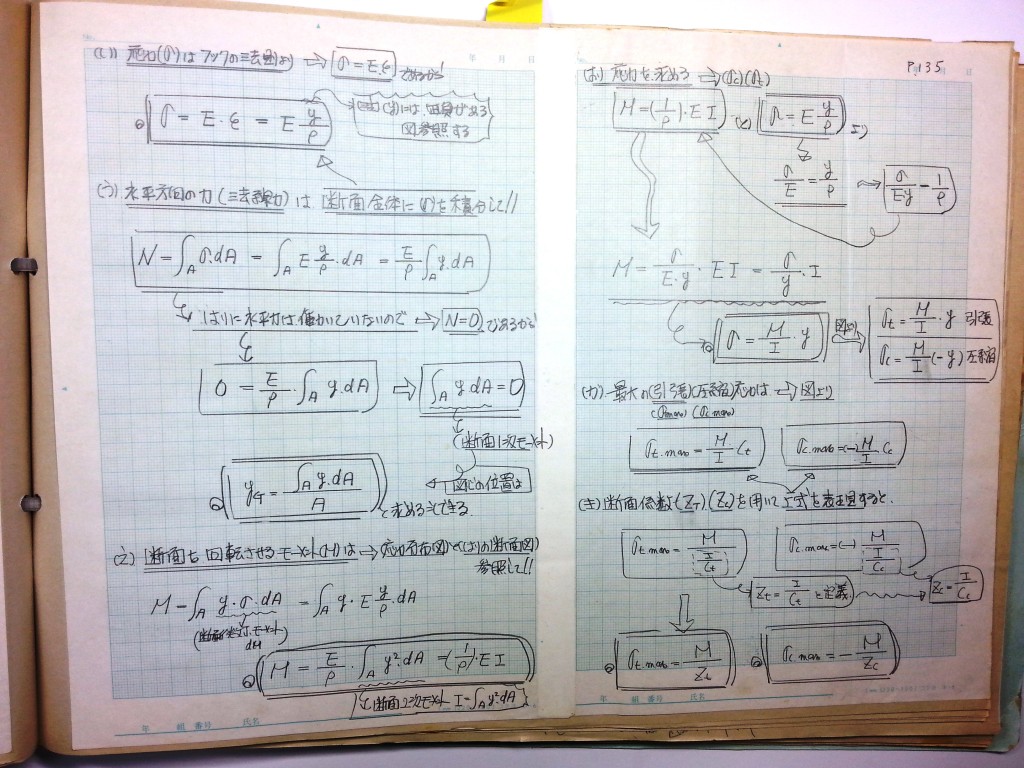 (い) 応力(σ)はフックの法則より → σ=E・ε であるから!
σ = E・ε = E y/ρ
図参照する
(う) 水平方向の力 は 断面全体に(σ)を積分して!!
N = ∫A σ・dA = ∫A E y/ρ・dA = E/ρ ∫A y・dA
はりに水平力は働いていないので → N=0 であるから!
0 = E/ρ・∫A y・dA ⇒ ∫A y・dA = 0
(断面1次モーメント)
図心の位置は
yG = ∫A y・dA / A と求めることできる。
(え) 断面を回転させるモーメント(M)は → 応力分布図 (はりの断面図)
参照して!!
M = ∫A y・σ・dA = ∫A y・E y/ρ・dA
dM
M = E/ρ・∫A y²・dA = (1/ρ)・EI
断面2次モーメント I=∫A y²・dA
年 組 番号 氏名
P.135
年 月 日
(お) 応力を求める →
M=(1/ρ)・EI と σ=E y/ρ より
σ/E = y/ρ → σ/Ey = 1/ρ
M = σ/E・y・EI = σ/y・I
σ = M/I・y
σt = M/I・y 引張
σc = M/I(-y) 圧縮
(か) 最大の(引張)(圧縮)応力は → 図より
(σt max) (σc max)
σt.max = M/I Ct σc.max=(-)M/I Cc
(き) 断面係数(ZT)(Zc)を用いて上式を表現すると、
σt.max = M / (I/Ct) σc.max = (-) M / (I/Cc)
Zt = I/Ct と定義 Zc = I/Cc
σt.max = M/Zt σc.max = -M/Zc
年 組 番号 氏名